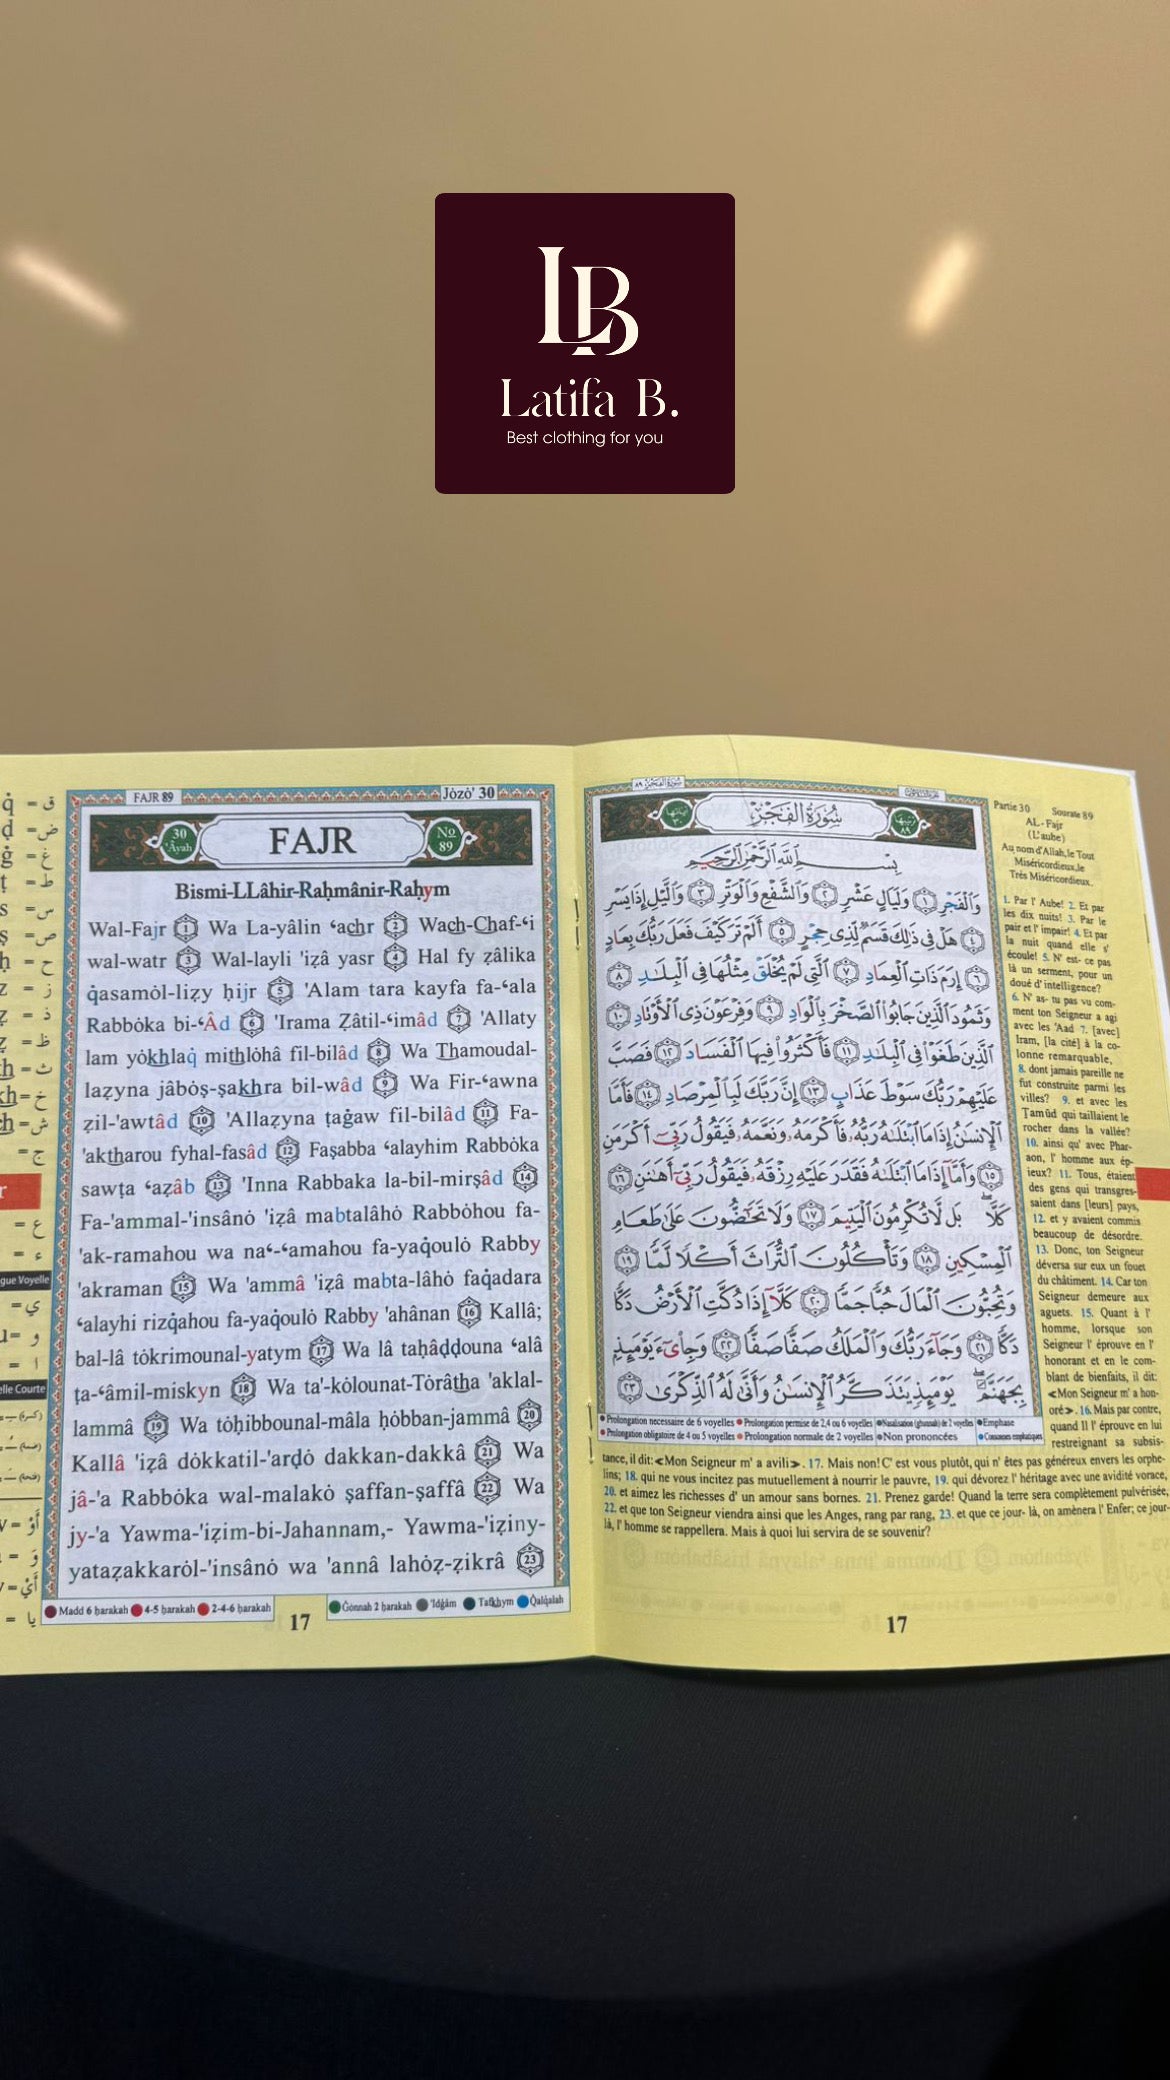 LB
Latifa B.
Best clothing for you
q̇ = ق
ḍ = ض
ġ = غ
ṭ = ط
s = س
ṣ = ص
ḥ = ح
z = ز
ẓ = ذ
ẓ = ظ
th = ث
kh = خ
ch = ش
= ج
= ع
= ء
gue Voyelle
= ي
= و
= ا
elle Courte
FAJR 89
Jòzò' 30
30 'Âyah
FAJR
No 89
Bismi-LLâhir-Raḥmânir-Raḥym
Wal-Fajr 1 Wa La-yâlin ‘achr 2 Wach-Chaf-‘i
wal-watr 3 Wal-layli 'iẓâ yasr 4 Hal fy ẓâlika
q̇asamòl-liẓy ḥijr 5 'Alam tara kayfa fa-‘ala
Rabbòka bi-‘Âd 6 'Irama Ẓâtil-‘imâd 7 'Allaty
lam yòkhlaq̇ mithlòhâ fil-bilâd 8 Wa Thamoudal-
laẓyna jâbòṣ-ṣakhra bil-wâd 9 Wa Fir-‘awna
ẓil-'awtâd 10 'Allaẓyna ṭaġaw fil-bilâd 11 Fa-
'aktharou fyhal-fasâd 12 Faṣabba ‘alayhim Rabbòka
sawṭa ‘aẓâb 13 'Inna Rabbaka la-bil-mirṣâd 14
Fa-'ammal-'insânò 'iẓâ mabtalâhò Rabbòhou fa-
'ak-ramahou wa na‘-‘amahou fa-yaq̇oulò Rabby
'akraman 15 Wa 'ammâ 'iẓâ mabta-lâhò faq̇adara
‘alayhi rizq̇ahou fa-yaq̇oulò Rabby 'ahânan 16 Kallâ;
bal-lâ tòkrimounal-yatym 17 Wa lâ taḥâḍḍouna ‘alâ
ṭa-‘âmil-miskyn 18 Wa ta'-kòlounat-Tòrâtha 'aklal-
lammâ 19 Wa tòḥibbounal-mâla ḥòbban-jammâ 20
Kallâ 'iẓâ dòkkatil-'arḍò dakkan-dakkâ 21 Wa
jâ-'a Rabbòka wal-malakò ṣaffan-ṣaffâ 22 Wa
jy-'a Yawma-'iẓim-bi-Jahannam,- Yawma-'iẓiny-
yataẓakkaròl-'insânò wa 'annâ lahòẓ-ẓikrâ 23
Madd 6 ḥarakah 4-5 ḥarakah 2-4-6 ḥarakah Ġonnah 2 ḥarakah 'Idġâm Tafkhym Q̇alq̇alah
17
سُورَةُ الفَجْرِ
بِسْمِ ٱللَّهِ ٱلرَّحْمَٰنِ ٱلرَّحِيمِ
وَٱلْفَجْرِ ١ وَلَيَالٍ عَشْرٍ ٢ وَٱلشَّفْعِ وَٱلْوَتْرِ ٣ وَٱلَّيْلِ إِذَا يَسْرِ
٤ هَلْ فِى ذَٰلِكَ قَسَمٌ لِّذِى حِجْرٍ ٥ أَلَمْ تَرَ كَيْفَ فَعَلَ رَبُّكَ بِعَادٍ
٦ إِرَمَ ذَاتِ ٱلْعِمَادِ ٧ ٱلَّتِى لَمْ يُخْلَقْ مِثْلُهَا فِى ٱلْبِلَٰدِ ٨
وَثَمُودَ ٱلَّذِينَ جَابُوا۟ ٱلصَّخْرَ بِٱلْوَادِ ٩ وَفِرْعَوْنَ ذِى ٱلْأَوْتَادِ ١٠
ٱلَّذِينَ طَغَوْا۟ فِى ٱلْبِلَٰدِ ١١ فَأَكْثَرُوا۟ فِيهَا ٱلْفَسَادَ ١٢ فَصَبَّ
عَلَيْهِمْ رَبُّكَ سَوْطَ عَذَابٍ ١٣ إِنَّ رَبَّكَ لَبِٱلْمِرْصَادِ ١٤ فَأَمَّا
ٱلْإِنسَٰنُ إِذَا مَا ٱبْتَلَىٰهُ رَبُّهُۥ فَأَكْرَمَهُۥ وَنَعَّمَهُۥ فَيَقُولُ رَبِّىٓ أَكْرَمَنِ
١٥ وَأَمَّآ إِذَا مَا ٱبْتَلَىٰهُ فَقَدَرَ عَلَيْهِ رِزْقَهُۥ فَيَقُولُ رَبِّىٓ أَهَٰنَنِ ١٦
كَلَّا ۖ بَل لَّا تُكْرِمُونَ ٱلْيَتِيمَ ١٧ وَلَا تَحَٰٓضُّونَ عَلَىٰ طَعَامِ
ٱلْمِسْكِينِ ١٨ وَتَأْكُلُونَ ٱلتُّرَاثَ أَكْلًا لَّمًّا ١٩
وَتُحِبُّونَ ٱلْمَالَ حُبًّا جَمًّا ٢٠ كَلَّآ إِذَا دُكَّتِ ٱلْأَرْضُ دَكًّا
دَكًّا ٢١ وَجَآءَ رَبُّكَ وَٱلْمَلَكُ صَفًّا صَفًّا ٢٢ وَجِا۟ىٓءَ يَوْمَئِذٍۭ
بِجَهَنَّمَ ۚ يَوْمَئِذٍ يَتَذَكَّرُ ٱلْإِنسَٰنُ وَأَنَّىٰ لَهُ ٱلذِّكْرَىٰ ٢٣
Prolongation necessaire de 6 voyelles Prolongation permise de 2,4 ou 6 voyelles Nasalisation (ghunnah) de 2 voyelles Emphase
Prolongation obligatoire de 4 ou 5 voyelles Prolongation normale de 2 voyelles Non prononcées Consonnes emphatiques
Partie 30 Sourate 89
AL-Fajr
(L'aube)
Au nom d'Allah, le Tout
Miséricordieux, le
Très Miséricordieux.
1. Par l' Aube! 2. Et par
les dix nuits! 3. Par le
pair et l' impair! 4. Et par
la nuit quand elle s'
écoule! 5. N' est- ce pas
là un serment, pour un
doué d' intelligence?
6. N' as- tu pas vu com-
ment ton Seigneur a agi
avec les 'Aad 7. [avec]
Iram, [la cité] à la co-
lonne remarquable,
8. dont jamais pareille ne
fut construite parmi les
villes? 9. et avec les
Tamûd qui taillaient le
rocher dans la vallée?
10. ainsi qu' avec Phar-
aon, l' homme aux ép-
ieux? 11. Tous, étaient
des gens qui transgres-
saient dans [leurs] pays,
12. et y avaient commis
beaucoup de désordre.
13. Donc, ton Seigneur
déversa sur eux un fouet
du châtiment. 14. Car ton
Seigneur demeure aux
aguets. 15. Quant à l'
homme, lorsque son
Seigneur l' éprouve en l'
honorant et en le com-
blant de bienfaits, il dit:
<Mon Seigneur m' a hon-
oré>. 16. Mais par contre,
quand Il l' éprouve en lui
restreignant sa subsis-
tance, il dit: <Mon Seigneur m' a avili>. 17. Mais non! C' est vous plutôt, qui n' êtes pas généreux envers les orphe-
lins; 18. qui ne vous incitez pas mutuellement à nourrir le pauvre, 19. qui dévorez l' héritage avec une avidité vorace,
20. et aimez les richesses d' un amour sans bornes. 21. Prenez garde! Quand la terre sera complètement pulvérisée,
22. et que ton Seigneur viendra ainsi que les Anges, rang par rang, 23. et que ce jour- là, on amènera l' Enfer; ce jour-
là, l' homme se rappellera. Mais à quoi lui servira de se souvenir?
17